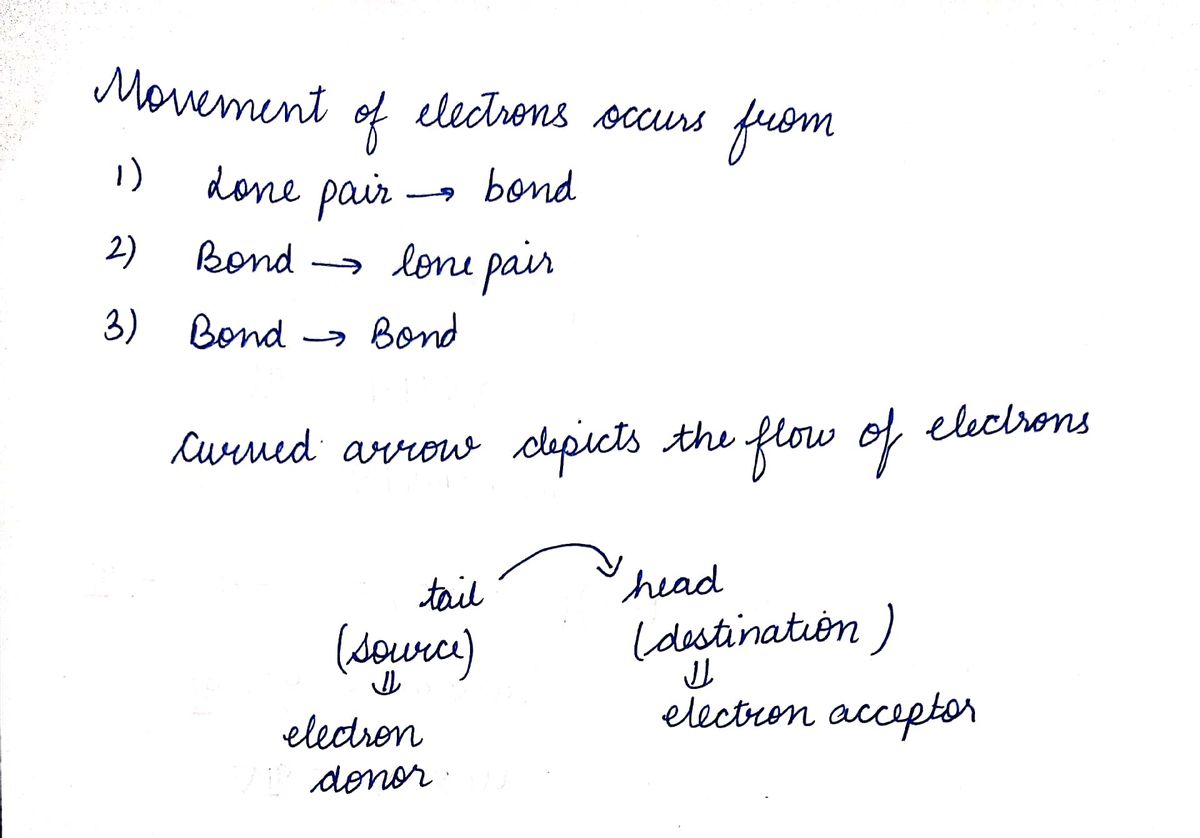 Movement of electrons occurs from
1) Lone pair → bond
2) Bond → lone pair
3) Bond → Bond
Curved arrow depicts the flow of electrons
tail head
(source) (destination)
⇓ ⇓
electron electron acceptor
donor